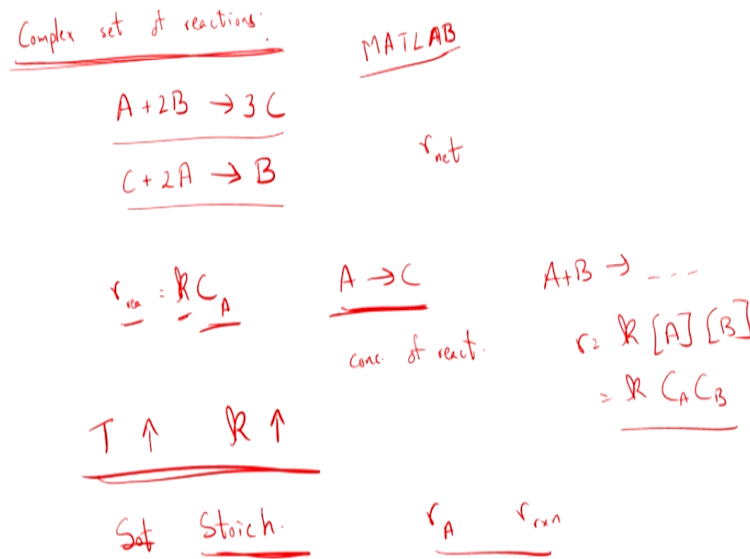 Complex set of reactions:
MATLAB
A+2B → 3C
r_net
C+2A → B
r_rea = k C_A
A → C
A+B → ----
conc. of react.
r = k [A] [B]
= k C_A C_B
T ↑ k ↑
Stoich.
r_A r_rxn